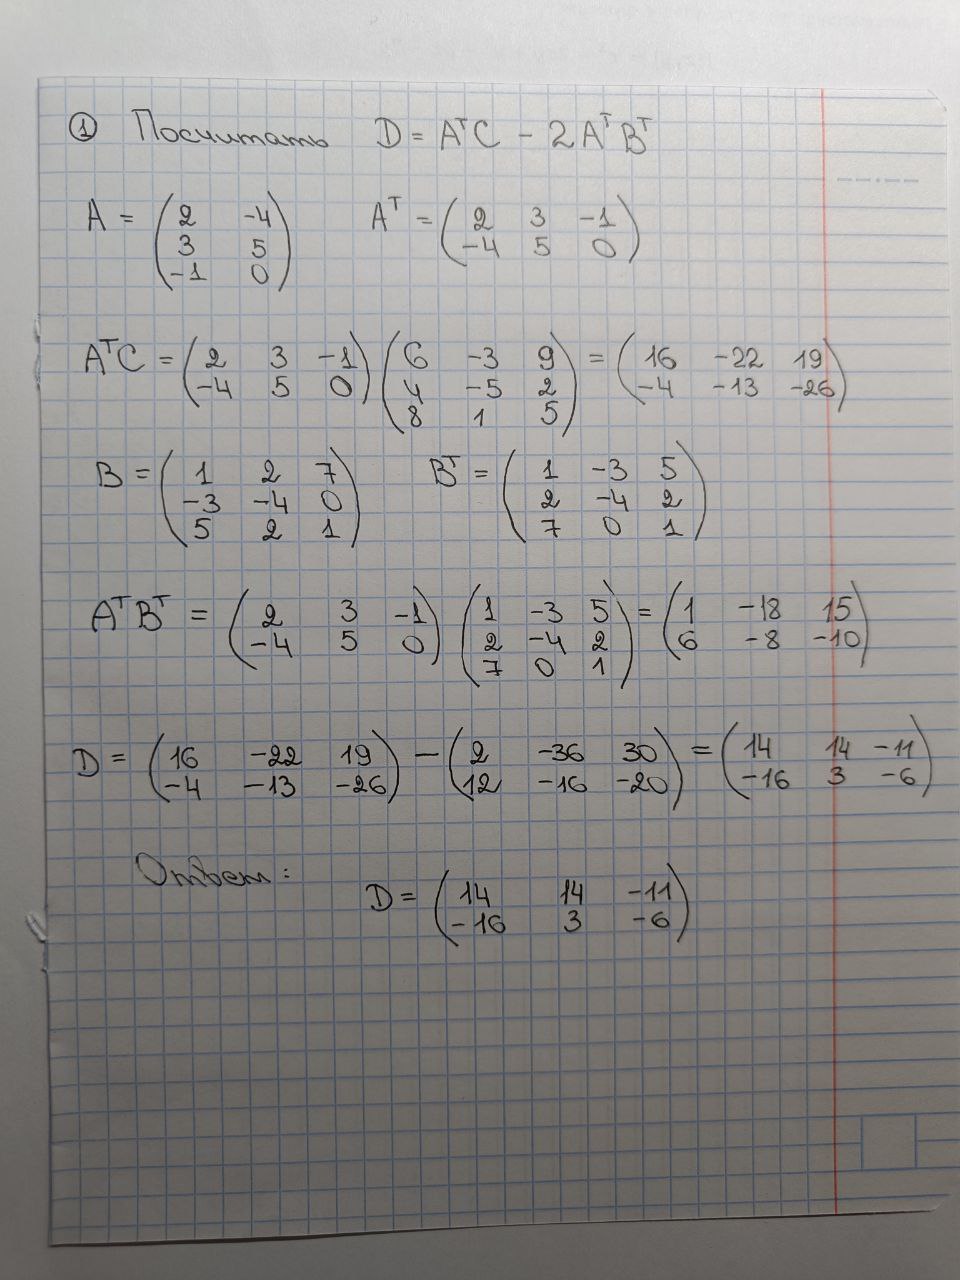 ① Посчитать D = AᵀC - 2AᵀBᵀ
A = (2 -4; 3 5; -1 0) Aᵀ = (2 3 -1; -4 5 0)
AᵀC = (2 3 -1; -4 5 0) (6 -3 9; 4 -5 2; 8 1 5) = (16 -22 19; -4 -13 -26)
B = (1 2 7; -3 -4 0; 5 2 1) Bᵀ = (1 -3 5; 2 -4 2; 7 0 1)
AᵀBᵀ = (2 3 -1; -4 5 0) (1 -3 5; 2 -4 2; 7 0 1) = (1 -18 15; 6 -8 -10)
D = (16 -22 19; -4 -13 -26) - (2 -36 30; 12 -16 -20) = (14 14 -11; -16 3 -6)
Ответ:
D = (14 14 -11; -16 3 -6)